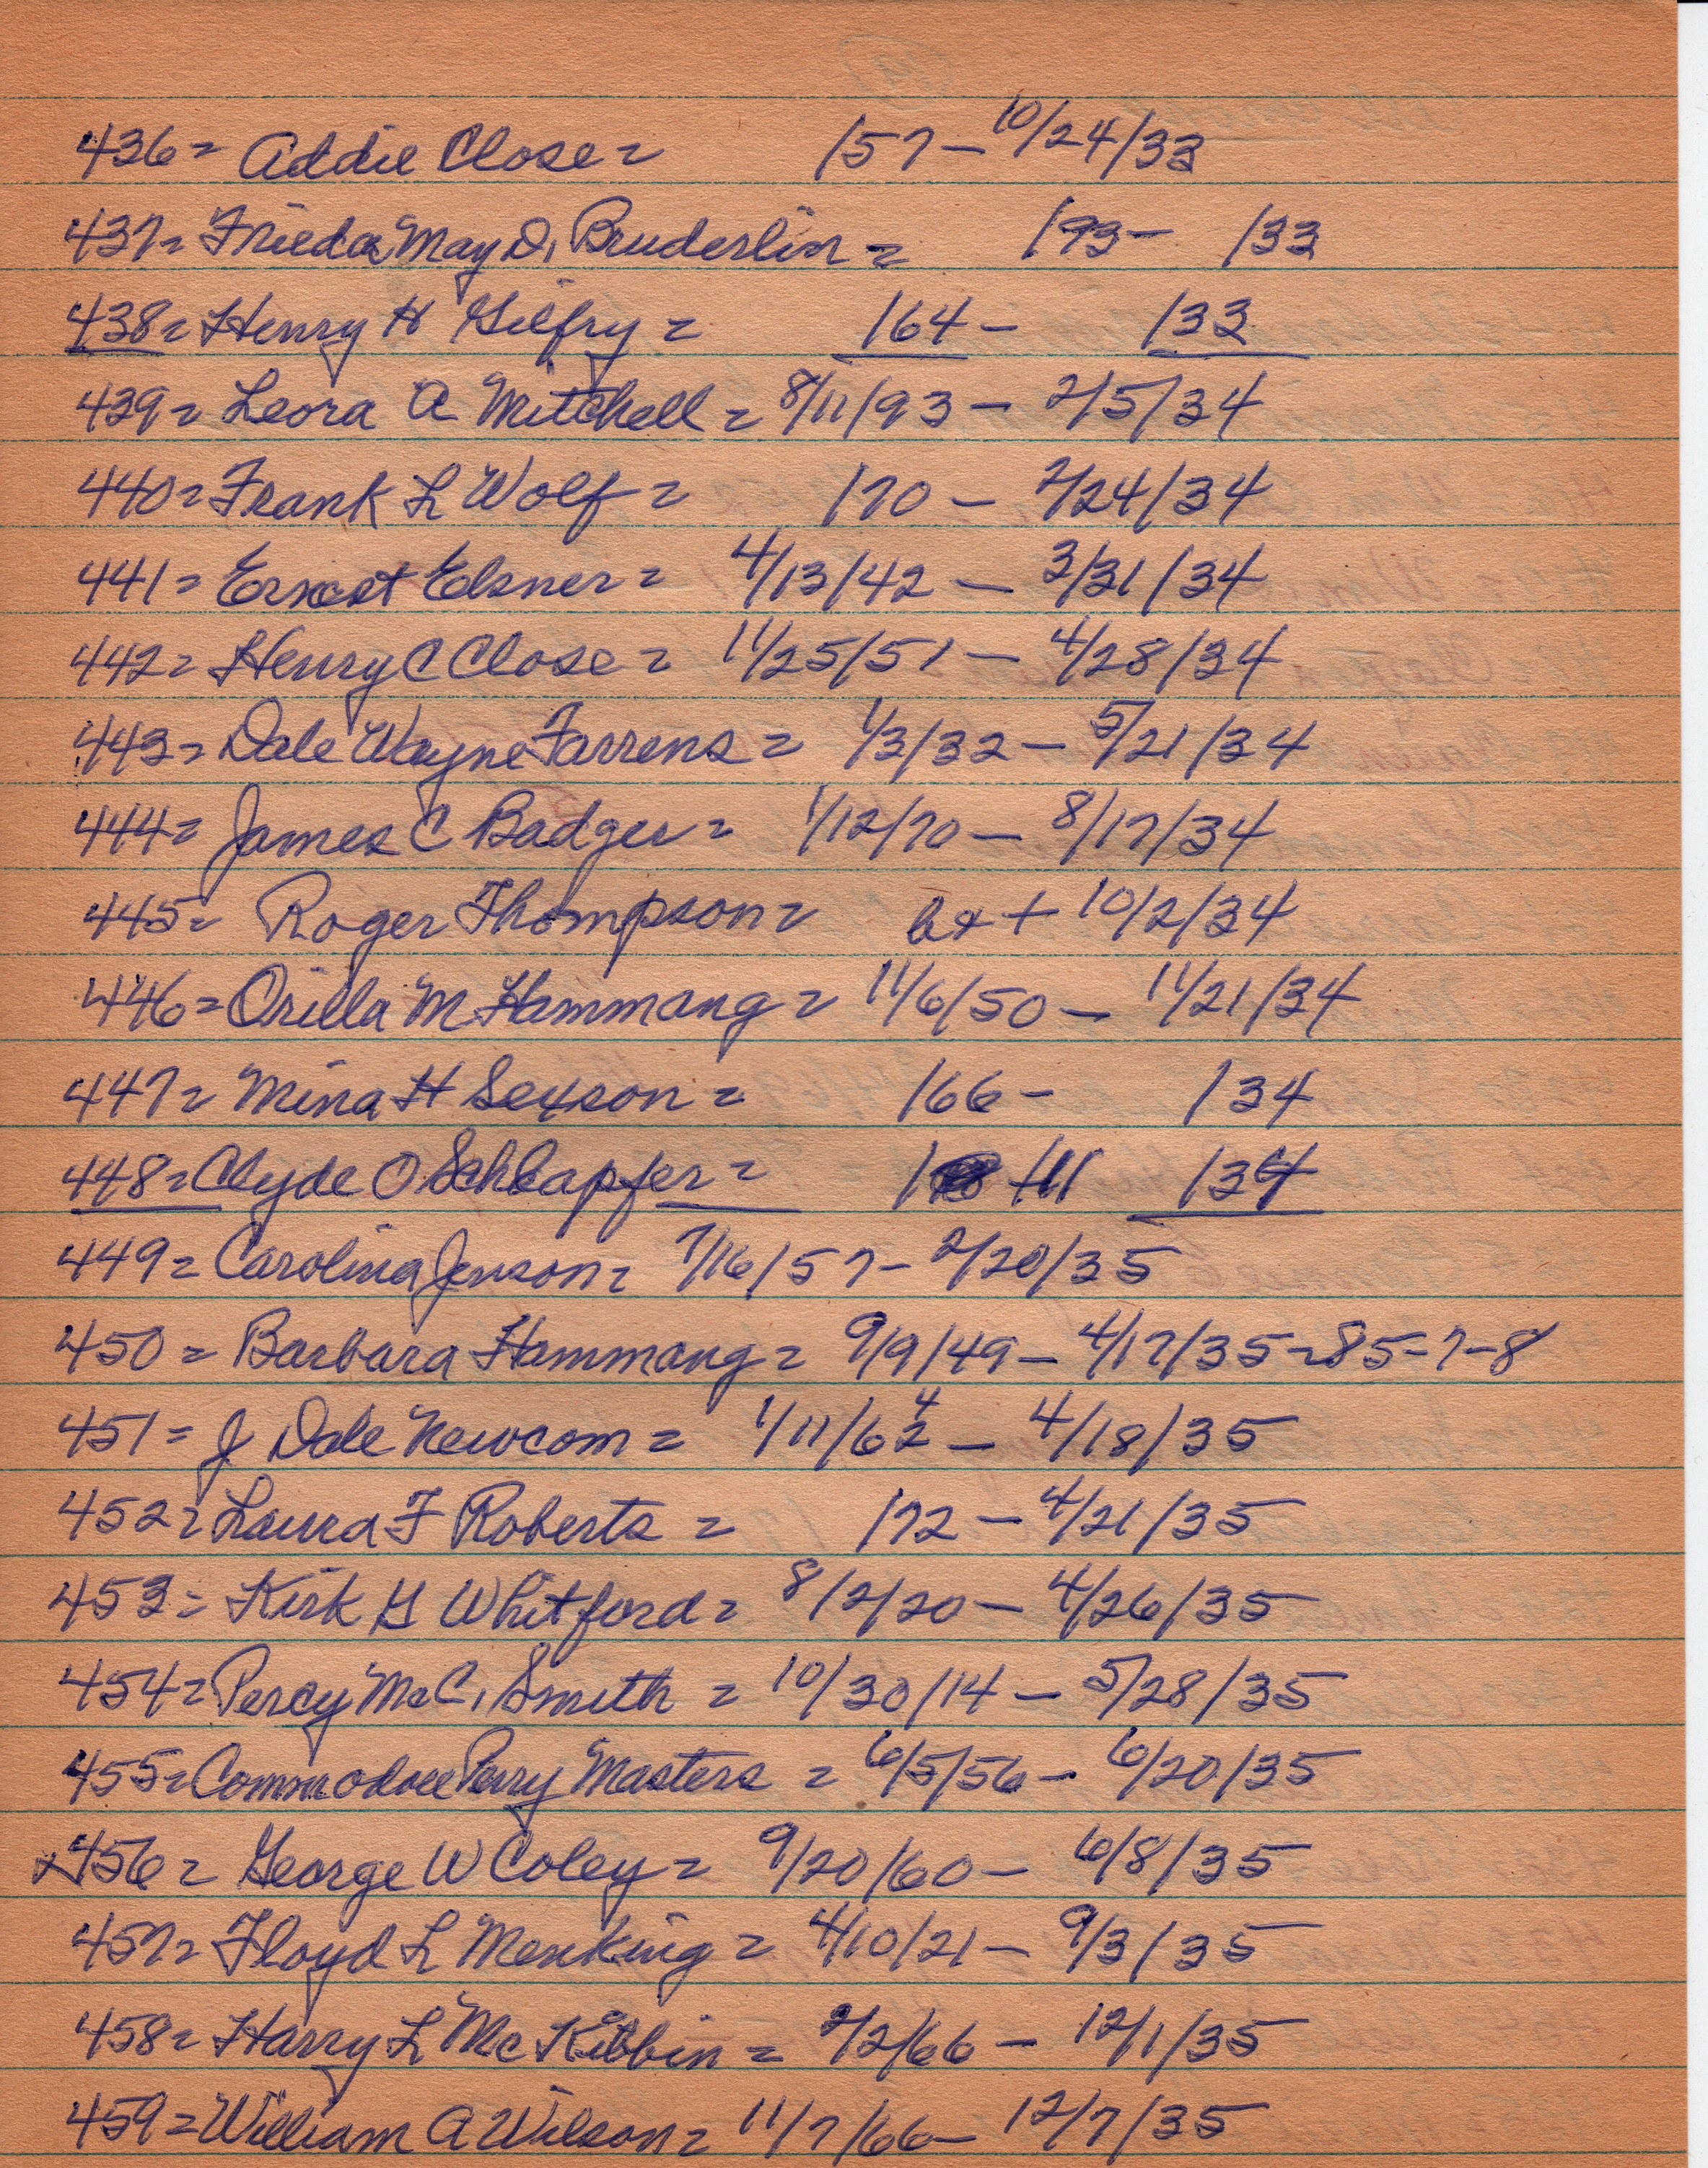 436= Addie Close = /57 - 10/24/33
437= Frieda May D. Bruderlin = /93 - /33
438= Henry H Gilfry = /64 - /33
439= Leora A Mitchell = 8/11/93 - 2/5/34
440= Frank L Wolf = /70 - 2/24/34
441= Ernest Elsner = 4/13/42 - 3/31/34
442= Henry C Close = 11/25/51 - 4/28/34
443= Dale Wayne Farrens = 1/3/32 - 5/21/34
444= James C Badger = 1/12/70 - 8/17/34
445= Roger Thompson = b&+ 10/2/34
446= Orilla M Hammang = 11/6/50 - 11/21/34
447= Mina H Sexson = /66 - /34
448= Clyde O Schlapfer = /34
449= Carolina Jenson = 7/16/57 - 2/20/35
450= Barbara Hammang = 9/9/49 - 4/17/35 - 85-7-8
451= J Dale Newcom = 1/11/64 - 4/18/35
452= Laura F Roberts = /72 - 4/21/35
453= Kirk G Whitford = 8/2/20 - 4/26/35
454= Percy McC. Smith = 10/30/14 - 5/28/35
455= Commodore Perry Masters = 6/5/56 - 6/20/35
x456= George W Coley = 9/20/60 - 6/8/35
457= Floyd L Menking = 4/10/21 - 9/3/35
458= Harry L McKibbin = 2/2/66 - 12/1/35
459= William A Wilson = 11/7/66 - 12/7/35